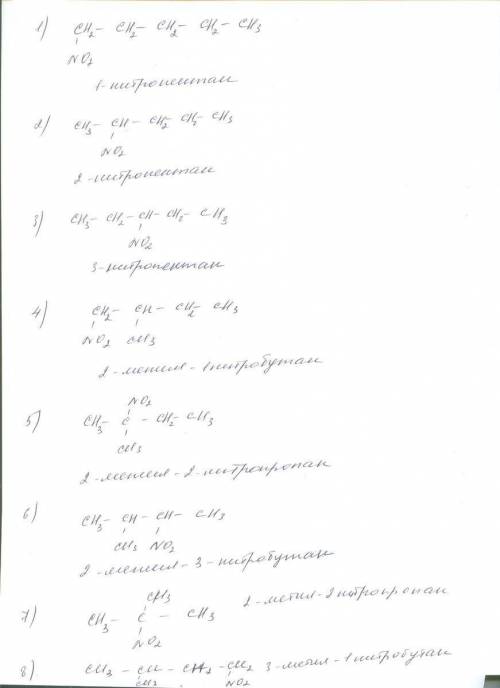 1) CH2 - CH2 - CH2 - CH2 - CH3
NO2
1-нитропентан
2) CH3 - CH - CH2 - CH2 - CH3
NO2
2-нитропентан
3) CH3 - CH2 - CH - CH2 - CH3
NO2
3-нитропентан
4) CH2 - CH - CH2 - CH3
NO2 CH3
2-метил-1нитробутан
NO2
5) CH3 - C - CH2 - CH3
CH3
2-метил-2-нитропропан
6) CH3 - CH - CH - CH3
CH3 NO2
2-метил-3-нитробутан
CH3
7) CH3 - C - CH3 2-метил-2нитропропан
NO2
8) CH3 - CH - CH2 - CH2 3-метил-1нитробутан
CH3 NO2